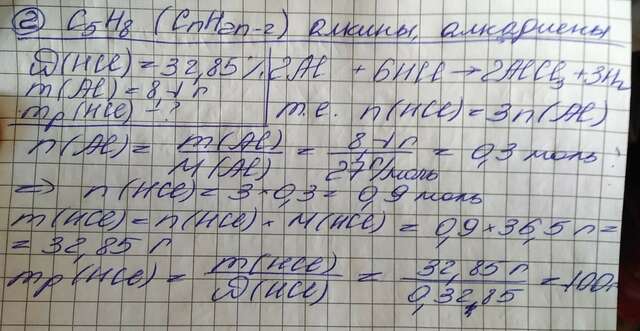 ② C₅H₈ (CnH2n-2) алкины, алкадиены
ω(HCl) = 32,85% 2Al + 6HCl → 2AlCl₃ + 3H₂
m(Al) = 8,1 г
mр(HCl) - ? т.е. n(HCl) = 3n(Al)
n(Al) = m(Al)/M(Al) = 8,1 г/27 г/моль = 0,3 моль
=> n(HCl) = 3 × 0,3 = 0,9 моль
m(HCl) = n(HCl) × M(HCl) = 0,9 × 36,5 г =
= 32,85 г
mр(HCl) = m(HCl)/ω(HCl) = 32,85 г/0,3285 = 100г